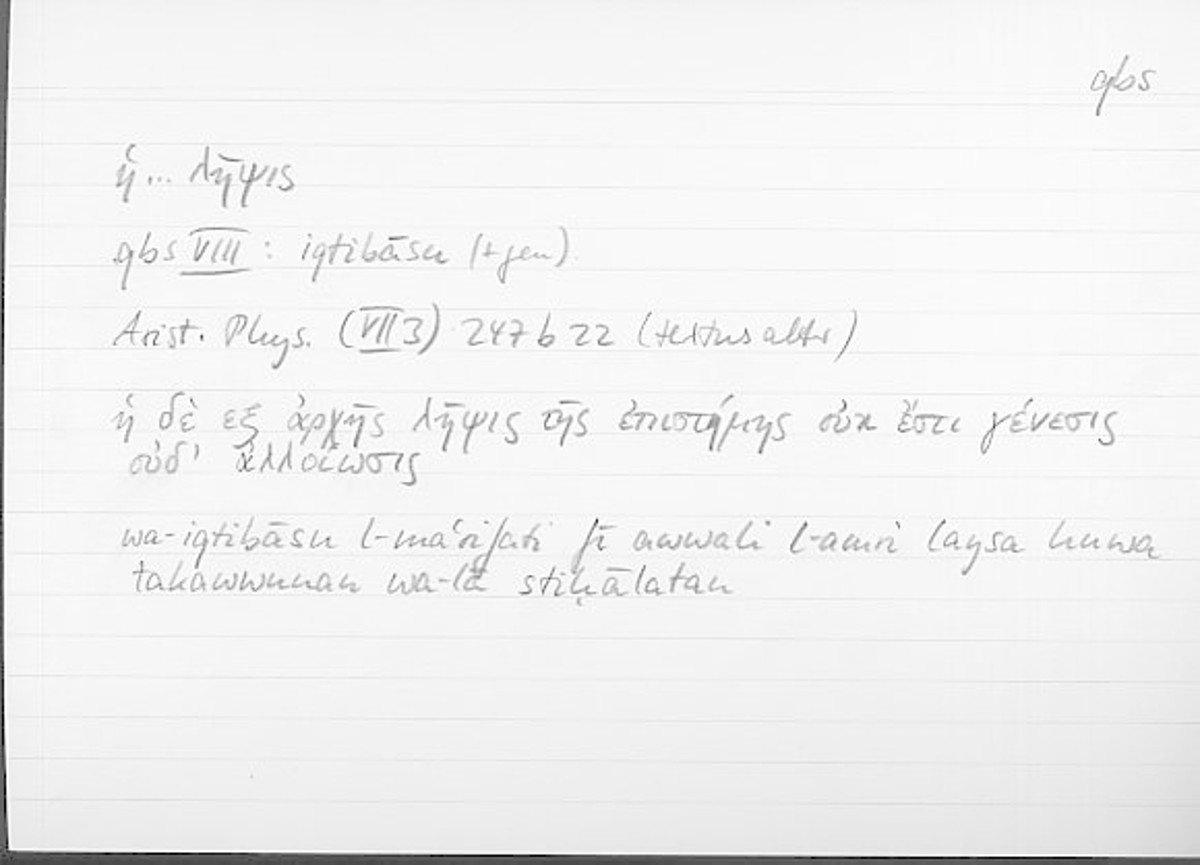 qbs
ἡ... λῆψις
qbs VIII : iqtibāsu (+ gen).
Arist. Phys. (VII 3) 247 b 22 (textus alter)
ἡ δὲ εξ ἀρχῆς λῆψις τῆς ἐπιστήμης οὐκ ἔστι γένεσις
οὐδ' ἀλλοίωσις
wa-iqtibāsu l-maʿrifati fī awwali l-amri laysa huwa
takawwunan wa-lā stiḥālatan